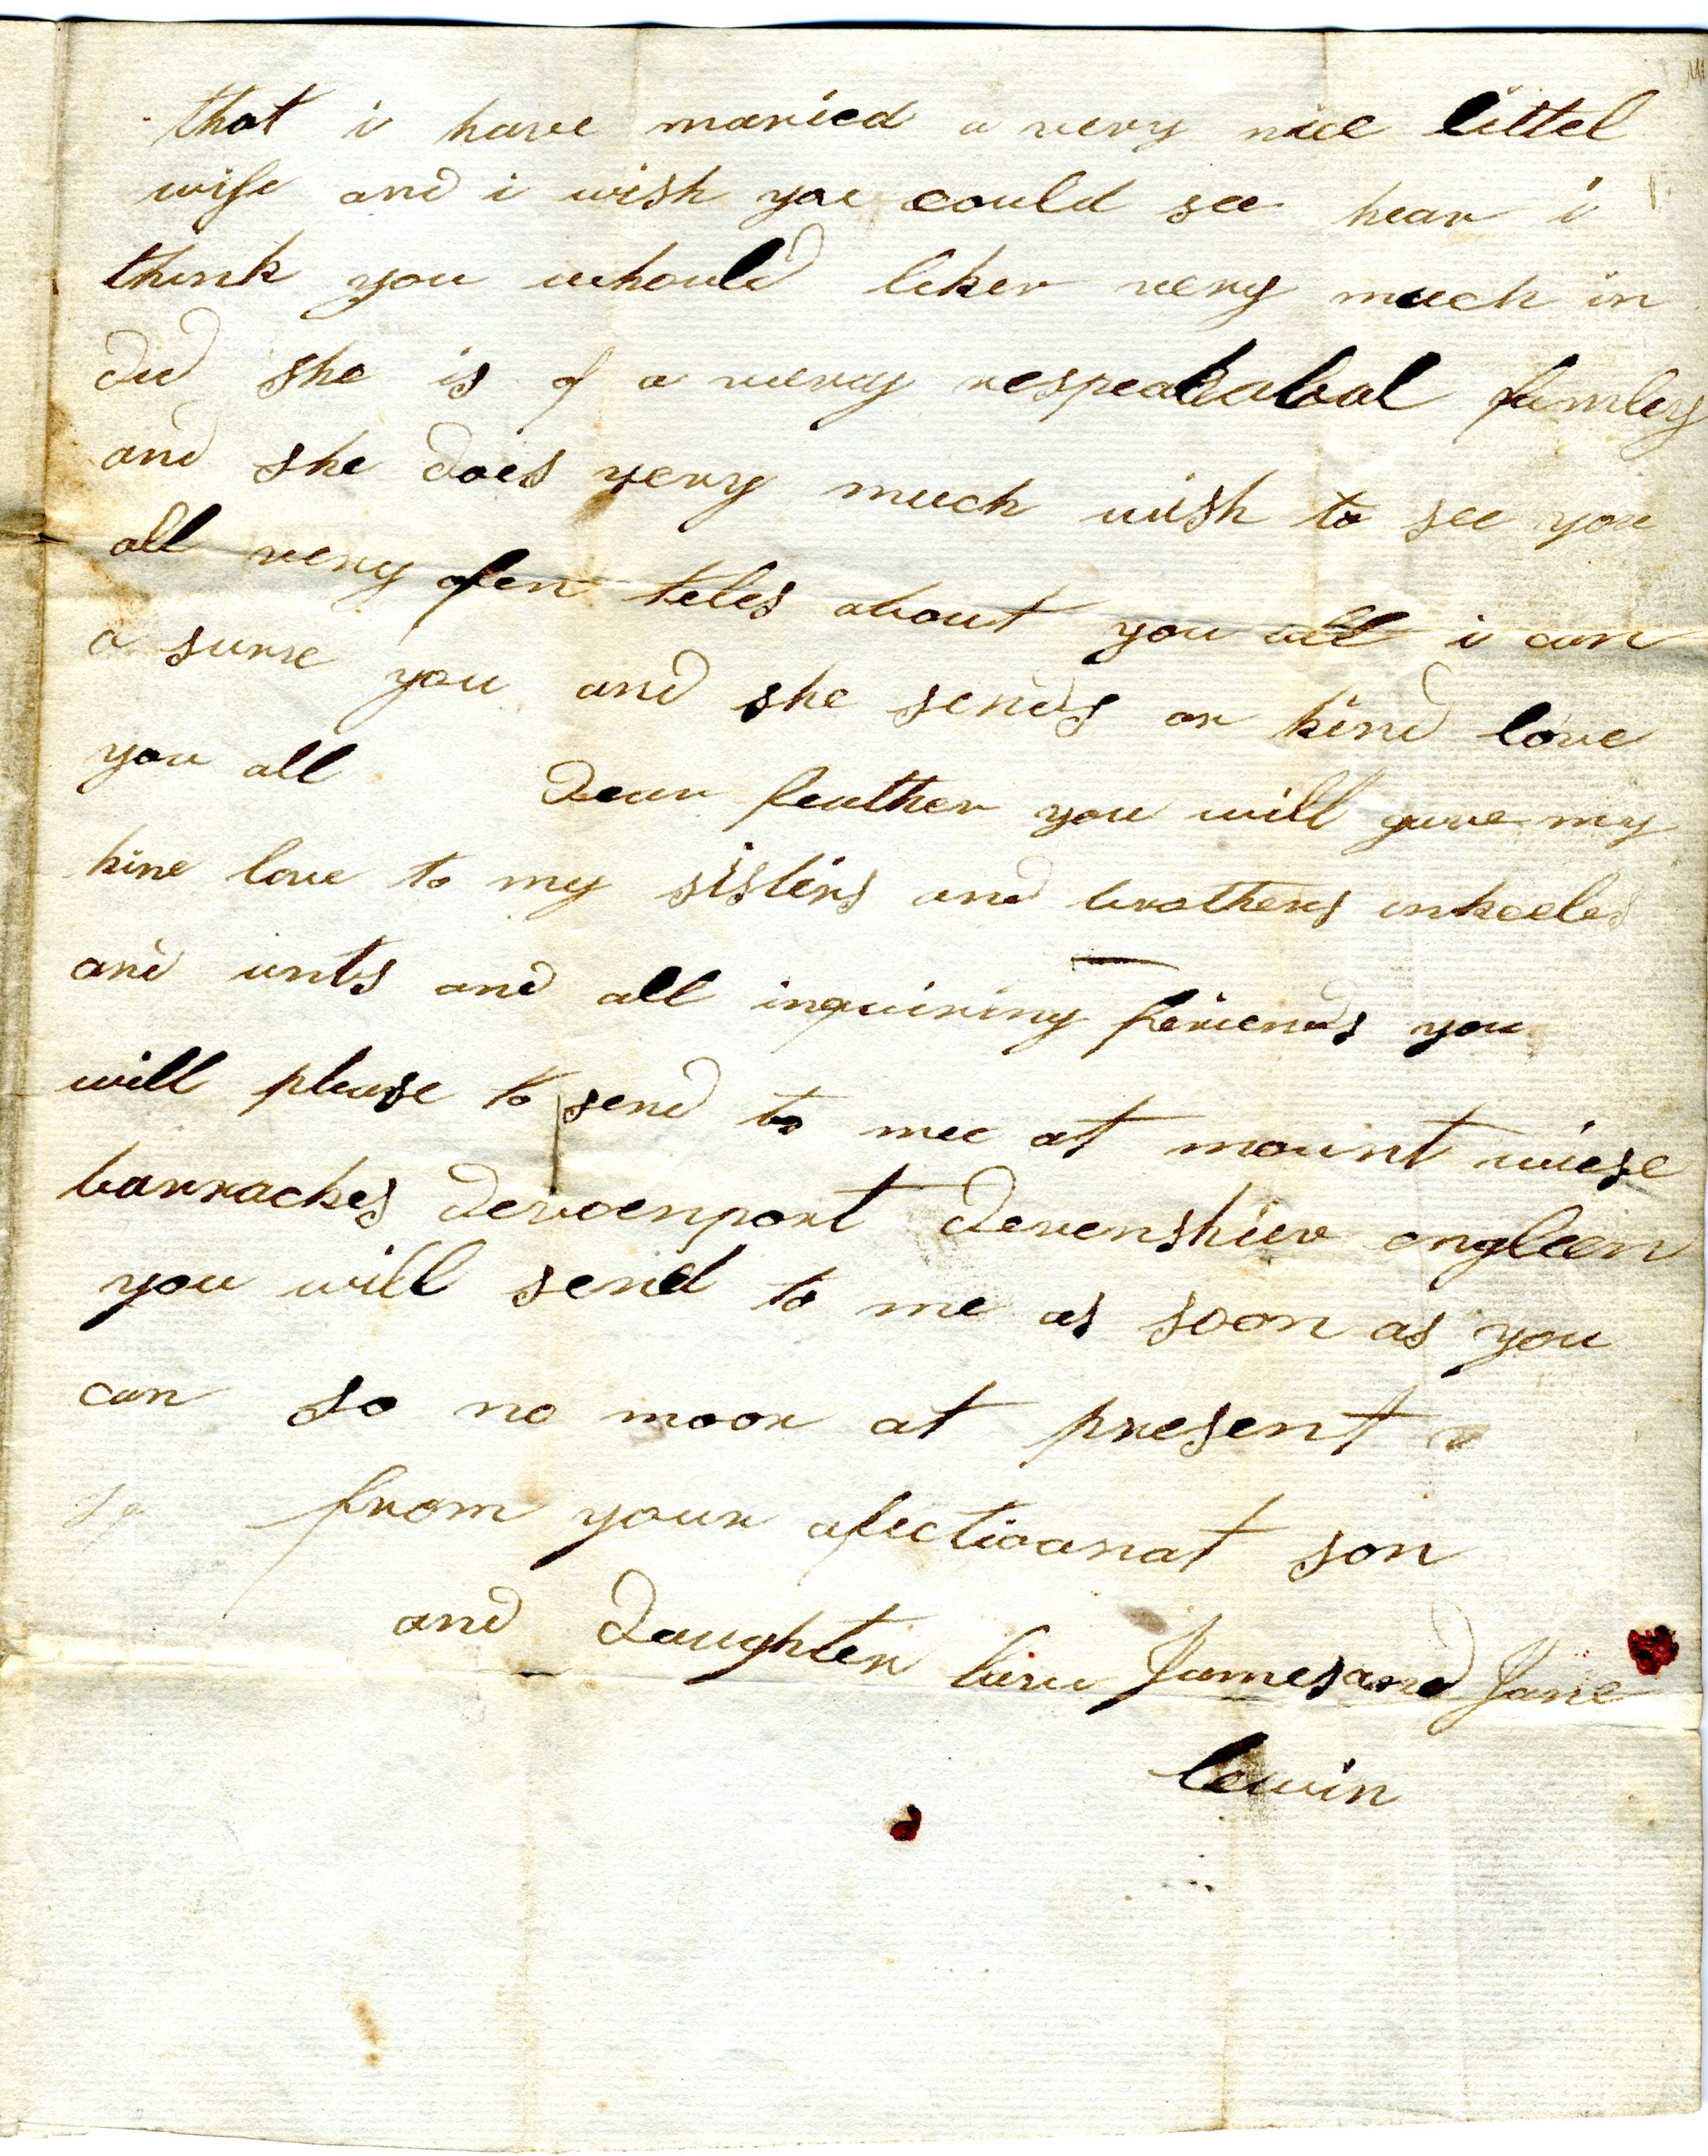 that i have maried a very nice littel
wife and i wish you could see hear i
think you whould liker very much in
ded she is of a very respeakabal famley
and she does very much wish to see you
all very ofen teles about you all i can
a surre you and she sends ar kind love
you all Dear feather you will gave my
kine love to my sisters and brothers unkeeles
and unts and all inquiring friends you
will please to send to mee at mount wiese
barrackes devoenport devenshier engleen
you will send to me as soon as you
can so no moor at present
from your afectioanat son
and daughter James and Jane
lewin